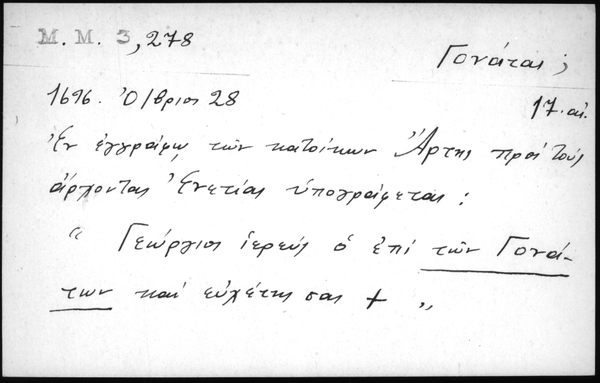 M. M. 3, 278
Γονάται;
1696. Ὀ/βριος 28
17. αἰ.
Ἐν ἐγγράφῳ τῶν κατοίκων Ἄρτης πρὸς τοὺς
ἄρχοντας Ἐνετίας ὑπογράφεται:
“ Γεώργιος ἱερεύς ὁ ἐπί τῶν Γονά-
των καί εὐχέτης σας + „